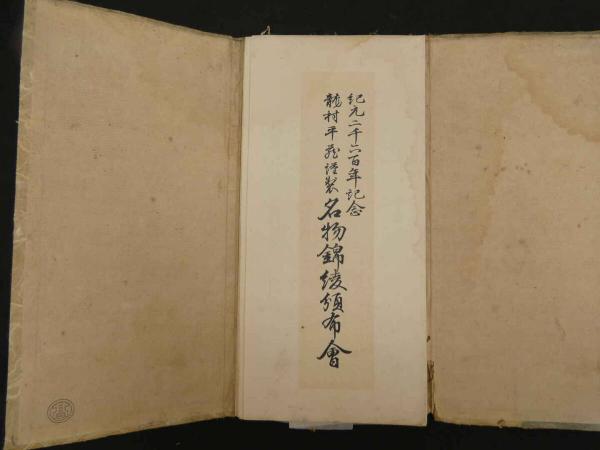 紀元二千六百年記念
龍村平蔵謹製 名物錦綾頒布會
髙